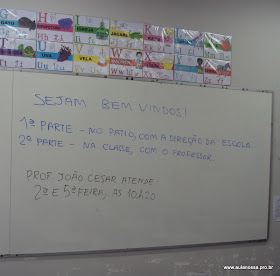 IGREJA
JACARÉ
UVA
VELA
SEJAM BEM VINDOS!
1ª PARTE - NO PATIO, COM A DIREÇÃO DA ESCOLA
2ª PARTE - NA CLASSE, COM O PROFESSOR.
PROF. JOÃO CESAR ATENDE:
2ª E 5ª FEIRA, AS 10H20
www.aulanossa.pro.br